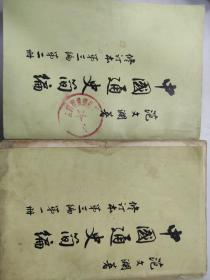 中國通史简编
修訂本第三編第二冊
范文瀾著
中國通史简编
修訂本第三編第一冊
范文瀾著